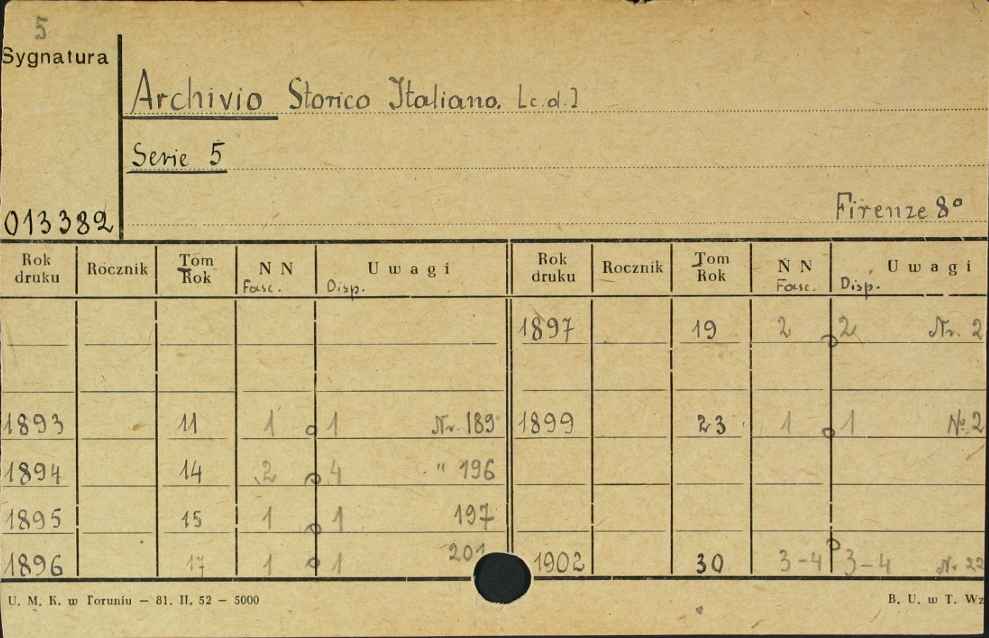 5
Sygnatura
Archivio Storico Italiano. [c.d.]
Serie 5
013382
Firenze 8°
Rok druku Rocznik Tom Rok N N Fasc. Uwagi Disp. Rok druku Rocznik Tom Rok N N Fasc. Uwagi Disp.
1897 19 2 2 Nr. 2
1893 11 1 1 Nr. 189 1899 23 1 1 Nº 2
1894 14 2 4 " 196
1895 15 1 1 197
1896 17 1 1 201 1902 30 3-4 3-4 Nr 22
U. M. K. w Toruniu — 81. II. 52 — 5000
B. U. w T. Wz